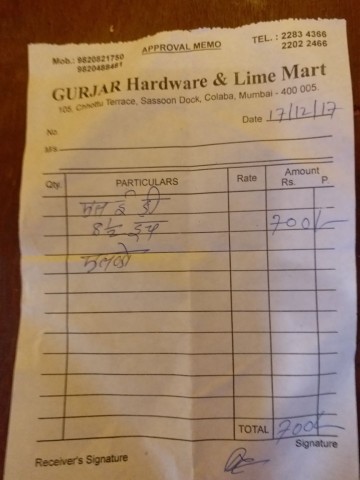 Mob.: 9820521750
APPROVAL MEMO
TEL. : 2283 4366
2202 2466
GURJAR Hardware & Lime Mart
105, Chhotu Terrace, Sassoon Dock, Colaba, Mumbai - 400 005.
Date 17/12/17
No.
M/s.
Qty. PARTICULARS Rate Amount Rs. P.
8½ इंच 700/-
TOTAL 700/-
Signature
Receiver's Signature